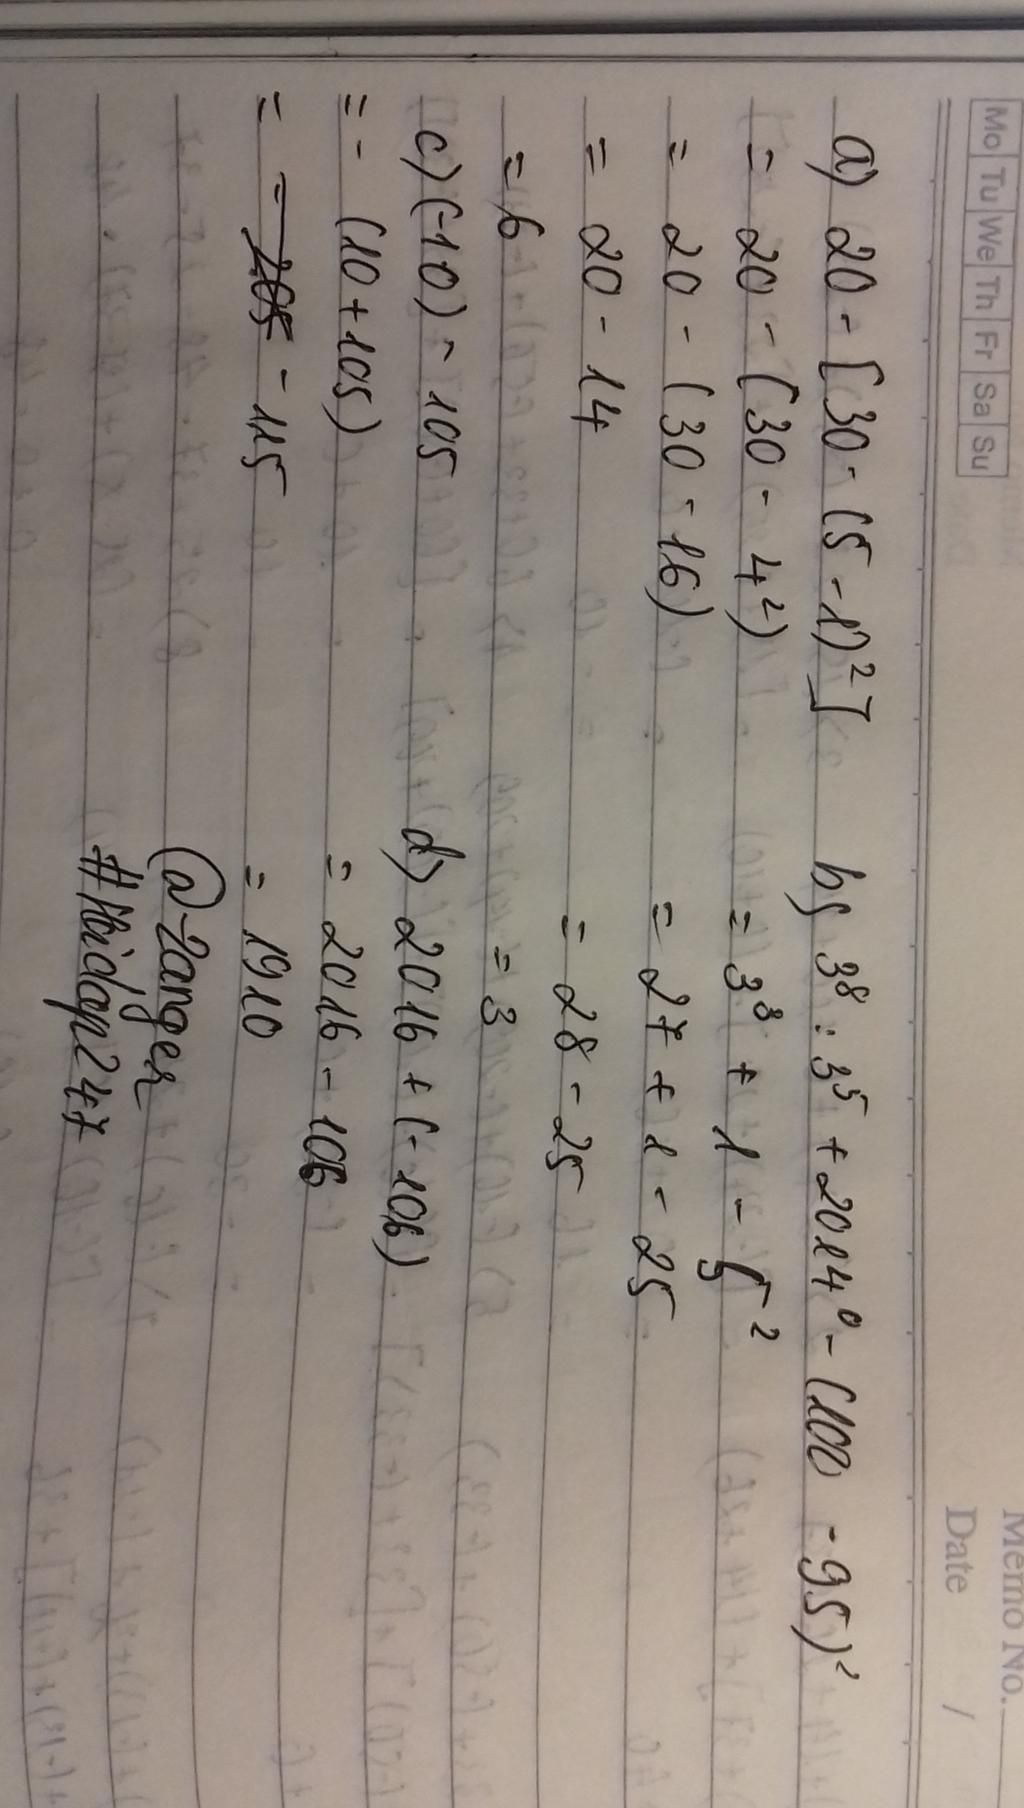 Memo No.
Mo Tu We Th Fr Sa Su
Date /
a) 20 - [30 - (5 - 1)²]
= 20 - (30 - 4²)
= 20 - (30 - 16)
= 20 - 14
= 6
b) 3⁸ : 3⁵ + 2014⁰ - (100 - 95)²
= 3³ + 1 - 5²
= 27 + 1 - 25
= 28 - 25
= 3
c) (-10) - 105
= - (10 + 105)
= - 115
d) 2016 + (-106)
= 2016 - 106
= 1910
@-Ranger
#Hoidap247